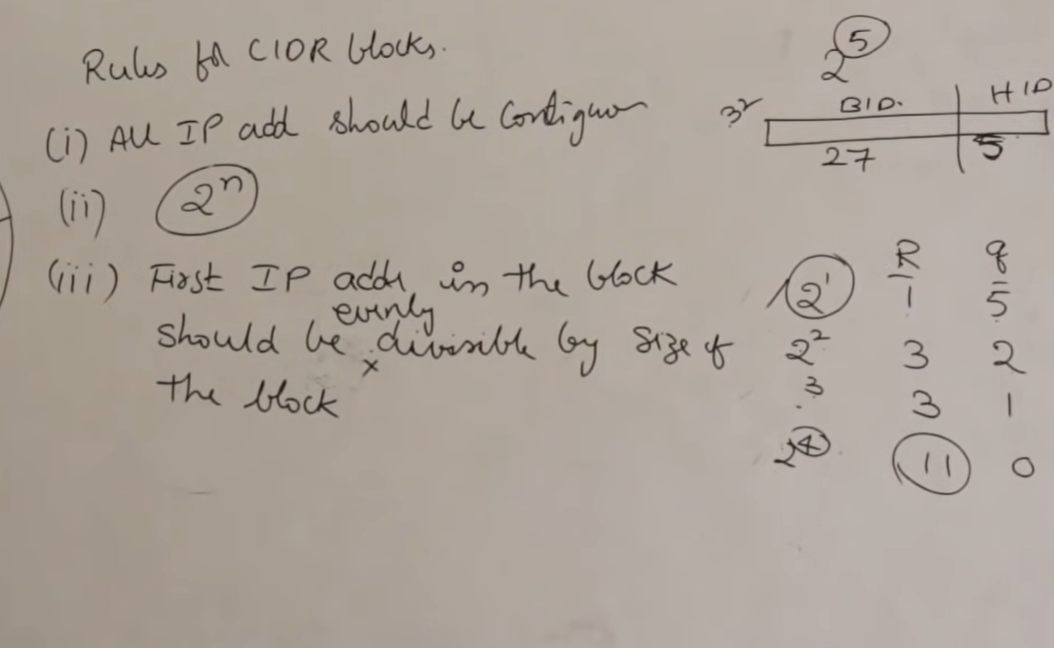 Rules for CIDR blocks.
(i) All IP add should be Contiguou
(ii) 2ⁿ
(iii) First IP addr in the block
should be evenly divisible by size of
the block
x
2⁵
32
BID. HID
27 5
R q
2¹ 1 5
2² 3 2
3 3 1
2⁴ 11 0